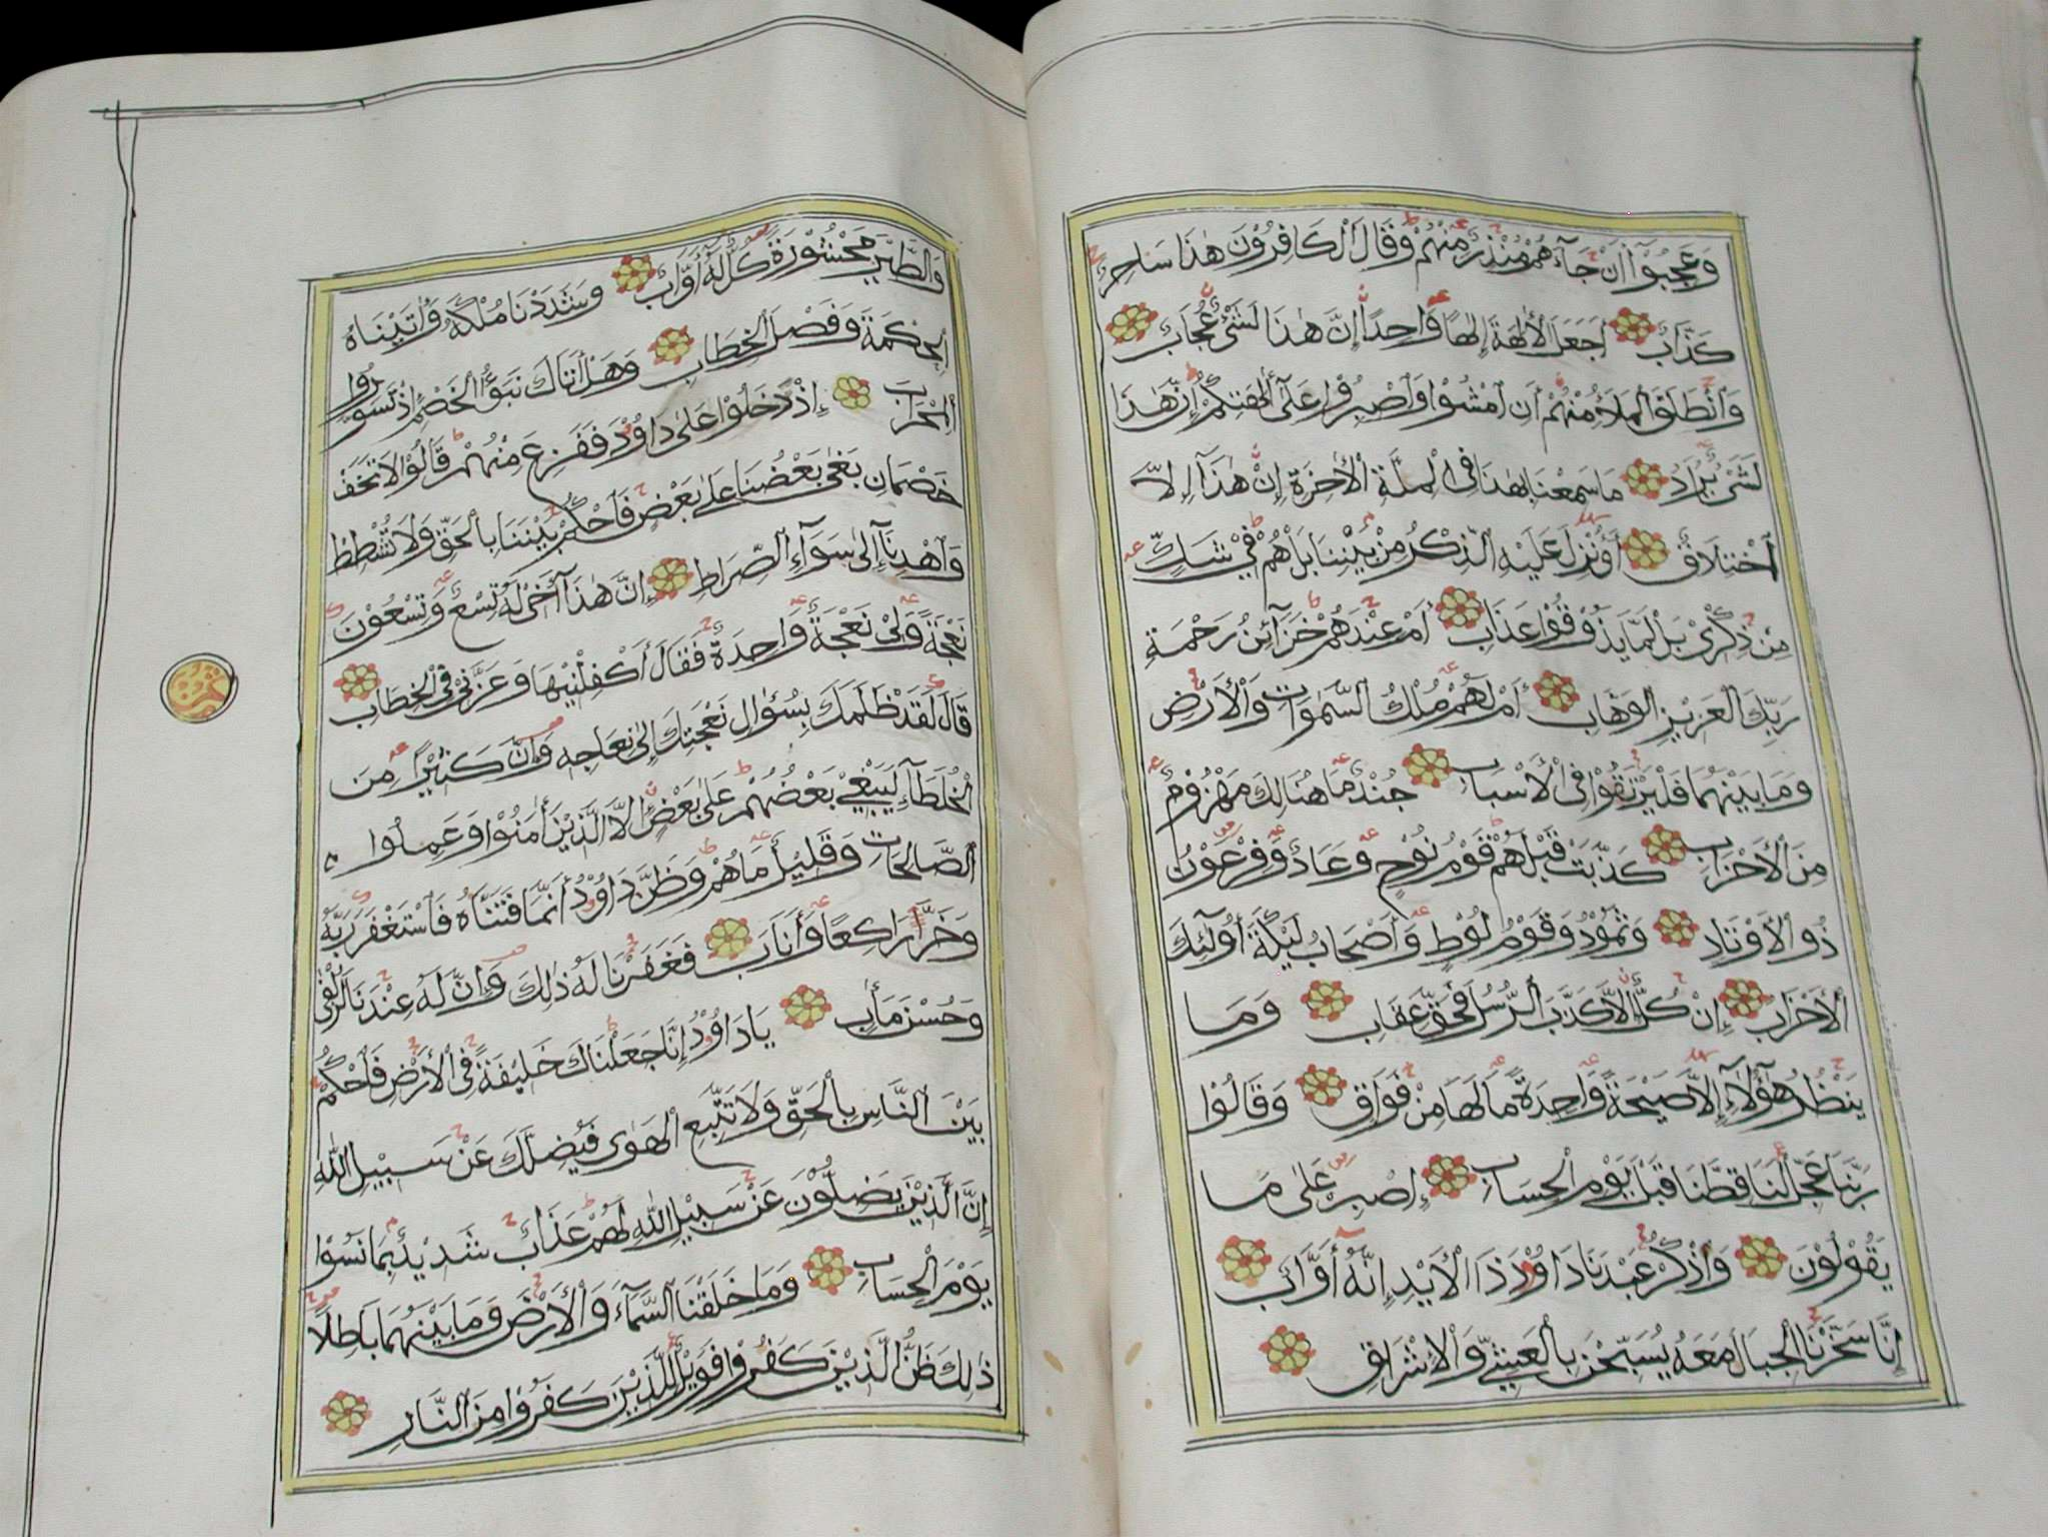 وَعَجِبُوْٓا اَنْ جَآءَهُمْ مُنْذِرٌ مِنْهُمْ وَقَالَ الْكَافِرُوْنَ هٰذَا سَاحِرٌ
كَذَّابٌ اَجَعَلَ الْاٰلِهَةَ اِلٰهًا وَاحِدًا اِنَّ هٰذَا لَشَىْءٌ عُجَابٌ
وَانْطَلَقَ الْمَلَاُ مِنْهُمْ اَنِ امْشُوْا وَاصْبِرُوْا عَلٰٓى اٰلِهَتِكُمْ اِنَّ هٰذَا
لَشَىْءٌ يُرَادُ مَا سَمِعْنَا بِهٰذَا فِى الْمِلَّةِ الْاٰخِرَةِ اِنْ هٰذَآ اِلَّا
اخْتِلَاقٌ اَؤُنْزِلَ عَلَيْهِ الذِّكْرُ مِنْ بَيْنِنَا بَلْ هُمْ فِيْ شَكٍّ
مِنْ ذِكْرِيْ بَلْ لَمَّا يَذُوْقُوْا عَذَابِ اَمْ عِنْدَهُمْ خَزَآئِنُ رَحْمَةِ
رَبِّكَ الْعَزِيْزِ الْوَهَّابِ اَمْ لَهُمْ مُلْكُ السَّمٰوَاتِ وَالْاَرْضِ
وَمَا بَيْنَهُمَا فَلْيَرْتَقُوْا فِى الْاَسْبَابِ جُنْدٌ مَا هُنَالِكَ مَهْزُوْمٌ
مِنَ الْاَحْزَابِ كَذَّبَتْ قَبْلَهُمْ قَوْمُ نُوْحٍ وَعَادٌ وَفِرْعَوْنُ
ذُو الْاَوْتَادِ وَثَمُوْدُ وَقَوْمُ لُوْطٍ وَاَصْحَابُ لْـَٔيْكَةِ اُولٰٓئِكَ
الْاَحْزَابُ اِنْ كُلٌّ اِلَّا كَذَّبَ الرُّسُلَ فَحَقَّ عِقَابِ وَمَا
يَنْظُرُ هٰٓؤُلَآءِ اِلَّا صَيْحَةً وَاحِدَةً مَا لَهَا مِنْ فَوَاقٍ وَقَالُوْا
رَبَّنَا عَجِّلْ لَنَا قِطَّنَا قَبْلَ يَوْمِ الْحِسَابِ اِصْبِرْ عَلٰى مَا
يَقُوْلُوْنَ وَاذْكُرْ عَبْدَنَا دَاوُدَ ذَا الْاَيْدِ اِنَّهٗ اَوَّابٌ
اِنَّا سَخَّرْنَا الْجِبَالَ مَعَهٗ يُسَبِّحْنَ بِالْعَشِيِّ وَالْاِشْرَاقِ
وَالطَّيْرَ مَحْشُوْرَةً كُلٌّ لَهٗٓ اَوَّابٌ وَشَدَدْنَا مُلْكَهٗ وَاٰتَيْنَاهُ
الْحِكْمَةَ وَفَصْلَ الْخِطَابِ وَهَلْ اَتَاكَ نَبَؤُا الْخَصْمِ اِذْ تَسَوَّرُوا
الْمِحْرَابَ اِذْ دَخَلُوْا عَلٰى دَاوُدَ فَفَزِعَ مِنْهُمْ قَالُوْا لَا تَخَفْ
خَصْمَانِ بَغٰى بَعْضُنَا عَلٰى بَعْضٍ فَاحْكُمْ بَيْنَنَا بِالْحَقِّ وَلَا تُشْطِطْ
وَاهْدِنَآ اِلٰى سَوَآءِ الصِّرَاطِ اِنَّ هٰذَآ اَخِيْ لَهٗ تِسْعٌ وَتِسْعُوْنَ
نَعْجَةً وَلِيْ نَعْجَةٌ وَاحِدَةٌ فَقَالَ اَكْفِلْنِيْهَا وَعَزَّنِيْ فِى الْخِطَابِ
قَالَ لَقَدْ ظَلَمَكَ بِسُؤَالِ نَعْجَتِكَ اِلٰى نِعَاجِهٖ وَاِنَّ كَثِيْرًا مِنَ
الْخُلَطَآءِ لَيَبْغِيْ بَعْضُهُمْ عَلٰى بَعْضٍ اِلَّا الَّذِيْنَ اٰمَنُوْا وَعَمِلُوا
الصَّالِحَاتِ وَقَلِيْلٌ مَا هُمْ وَظَنَّ دَاوُدُ اَنَّمَا فَتَنَّاهُ فَاسْتَغْفَرَ رَبَّهٗ
وَخَرَّ رَاكِعًا وَاَنَابَ فَغَفَرْنَا لَهٗ ذٰلِكَ وَاِنَّ لَهٗ عِنْدَنَا لَزُلْفٰى
وَحُسْنَ مَاٰبٍ يَا دَاوُدُ اِنَّا جَعَلْنَاكَ خَلِيْفَةً فِى الْاَرْضِ فَاحْكُمْ
بَيْنَ النَّاسِ بِالْحَقِّ وَلَا تَتَّبِعِ الْهَوٰى فَيُضِلَّكَ عَنْ سَبِيْلِ اللّٰهِ
اِنَّ الَّذِيْنَ يَضِلُّوْنَ عَنْ سَبِيْلِ اللّٰهِ لَهُمْ عَذَابٌ شَدِيْدٌ بِمَا نَسُوْا
يَوْمَ الْحِسَابِ وَمَا خَلَقْنَا السَّمَآءَ وَالْاَرْضَ وَمَا بَيْنَهُمَا بَاطِلًا
ذٰلِكَ ظَنُّ الَّذِيْنَ كَفَرُوْا فَوَيْلٌ لِلَّذِيْنَ كَفَرُوْا مِنَ النَّارِ